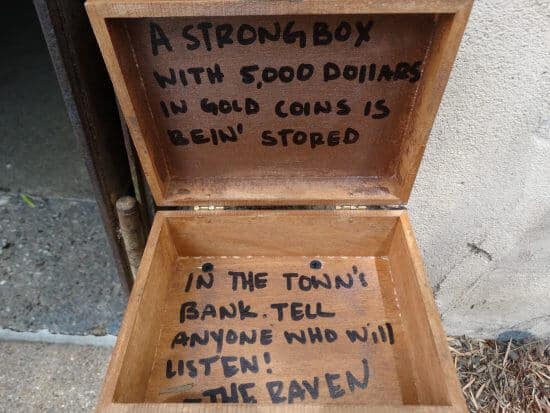 A STRONG BOX
WITH 5,000 DOllARS
IN GOLD COINS IS
BEIN' STORED
IN THE TOWN'S
BANK. TELL
ANYONE WHO Will
LISTEN!
- THE RAVEN